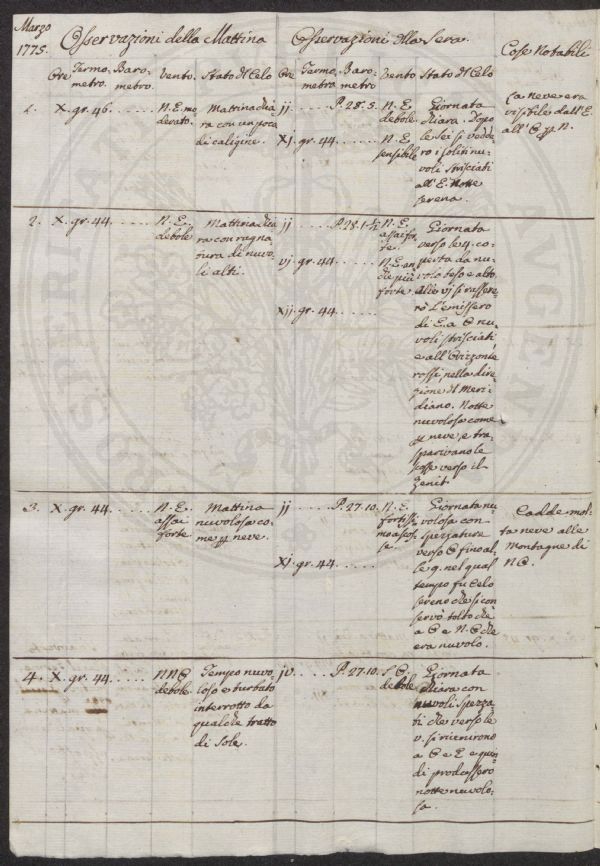 Marzo
1775.
Osservazioni della Mattina
Osservazioni della Sera.
Cose Notabili
Ore Termometro. Barometro. Vento. Stato del Celo
Ore Termometro Barometro Vento Stato del Celo
1. X. gr. 46. . . . . . N. E. mo
devato.
Mattina chia
ra con un poca
di caligine.
jj . . . . . P. 28. 5. N. E.
debole
Giornata
chiara. Dopo
le sei si vedde
ro i soliti nu
voli strisciati
all'E. Notte
serena.
XJ. gr. 44. . . . . . N. E.
sensibile
La neve era
visibile dall'E.
all'O p N.
2. X. gr. 44. . . . . . N. E.
debole
Mattina chia
ra con ragna
tura di nuvo
li alti.
jj . . . . . P. 28. 1-½ N. E.
assai for
te.
vj. gr. 44. . . . . N. E. an
che più
forte
Xjj. gr. 44. . . . . .
Giornata
verso le 4. co
perta da nu
volo teso e alto
Alle vj si rassere
rò l'emissero
di E. a O nu
voli strisciati,
e all'Orizonte
rossi, nella dire
zione del Meri
diano. Notte
nuvolosa come
p neve, e tra
sparivano le
verso il
Zenit.
3. X. gr. 44. . . . . . N. E.
assai
forte
Mattina
nuvolosa co
me p neve.
jj . . . . . P. 27. 10. N. E.
fortissi
mo
XJ. gr. 44. . . . . .
Giornata nu
volosa con
spezzature
verso O fino al
le 9. nel qual
tempo fu Celo
sereno che si con
servò tolto che
a O e N. O che
era nuvolo.
Cadde mol
ta neve alle
Montagne di
NO.
4. X. gr. 44. . . . . . NNO
debole.
Tempo nuvo
loso e turbato
interrotto da
qualche tratto
di Sole.
jv. . . . . P. 27. 10. S. O.
debole
Giornata
chiara con
nuvoli spezza
ti che verso le
v. si riunirono
a O e E e quin
di produssero
notte nuvolo
sa.